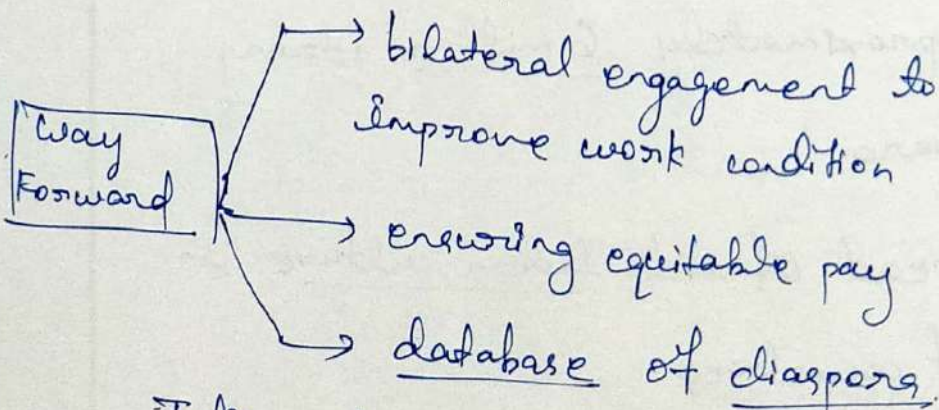 Way
Forward
→ bilateral engagement to
improve work condition
→ ensuring equitable pay
→ database of diaspora